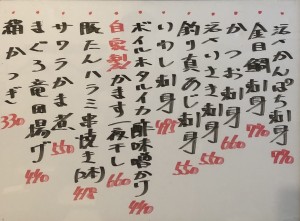 活〆かんぱち刺身 770
金目鯛刺身 770
かつお刺身 660
活〆いさき刺身 550
釣り真あじ刺身 550
いわし刺身 495
ボイルホタルイカ酢味噌がけ 440
自家製かます一夜干し 660
豚たんハラミ串焼き 495
サワラかま煮 550
まぐろ竜田揚げ 440
絹かつぎ 330